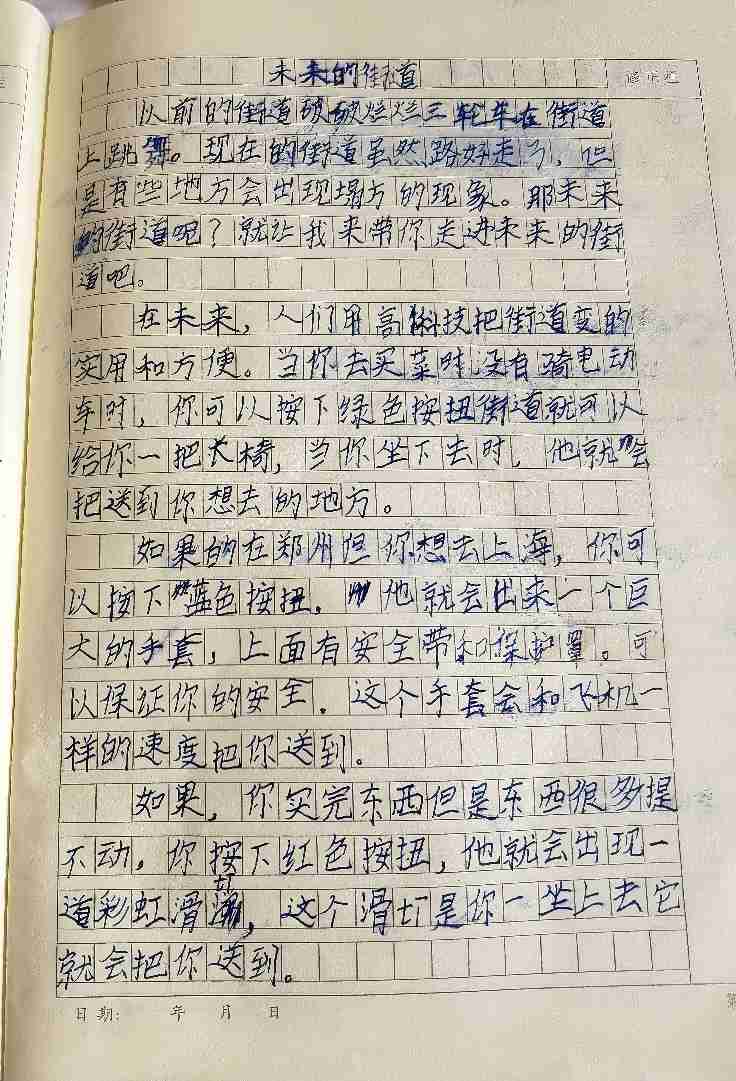 未来的街道
以前的街道破破烂烂三轮车在街道
上跳舞。现在的街道虽然路好走了，但
是有些地方会出现塌方的现象。那未来
的街道呢？就让我来带你走进未来的街
道吧。
在未来，人们用高科技把街道变的
实用和方便。当你去买菜时没有骑电动
车时，你可以按下绿色按扭街道就可以
给你一把长椅，当你坐下去时，他就会
把送到你想去的地方。
如果的在郑州但你想去上海，你可
以按下蓝色按扭．他就会出来一个巨
大的手套，上面有安全带和保护罩。可
以保证你的安全．这个手套会和飞机一
样的速度把你送到。
如果，你买完东西但是东西很多提
不动．你按下红色按扭，他就会出现一
道彩虹滑，这个滑是你一坐上去它
就会把你送到。
日期： 年 月 日